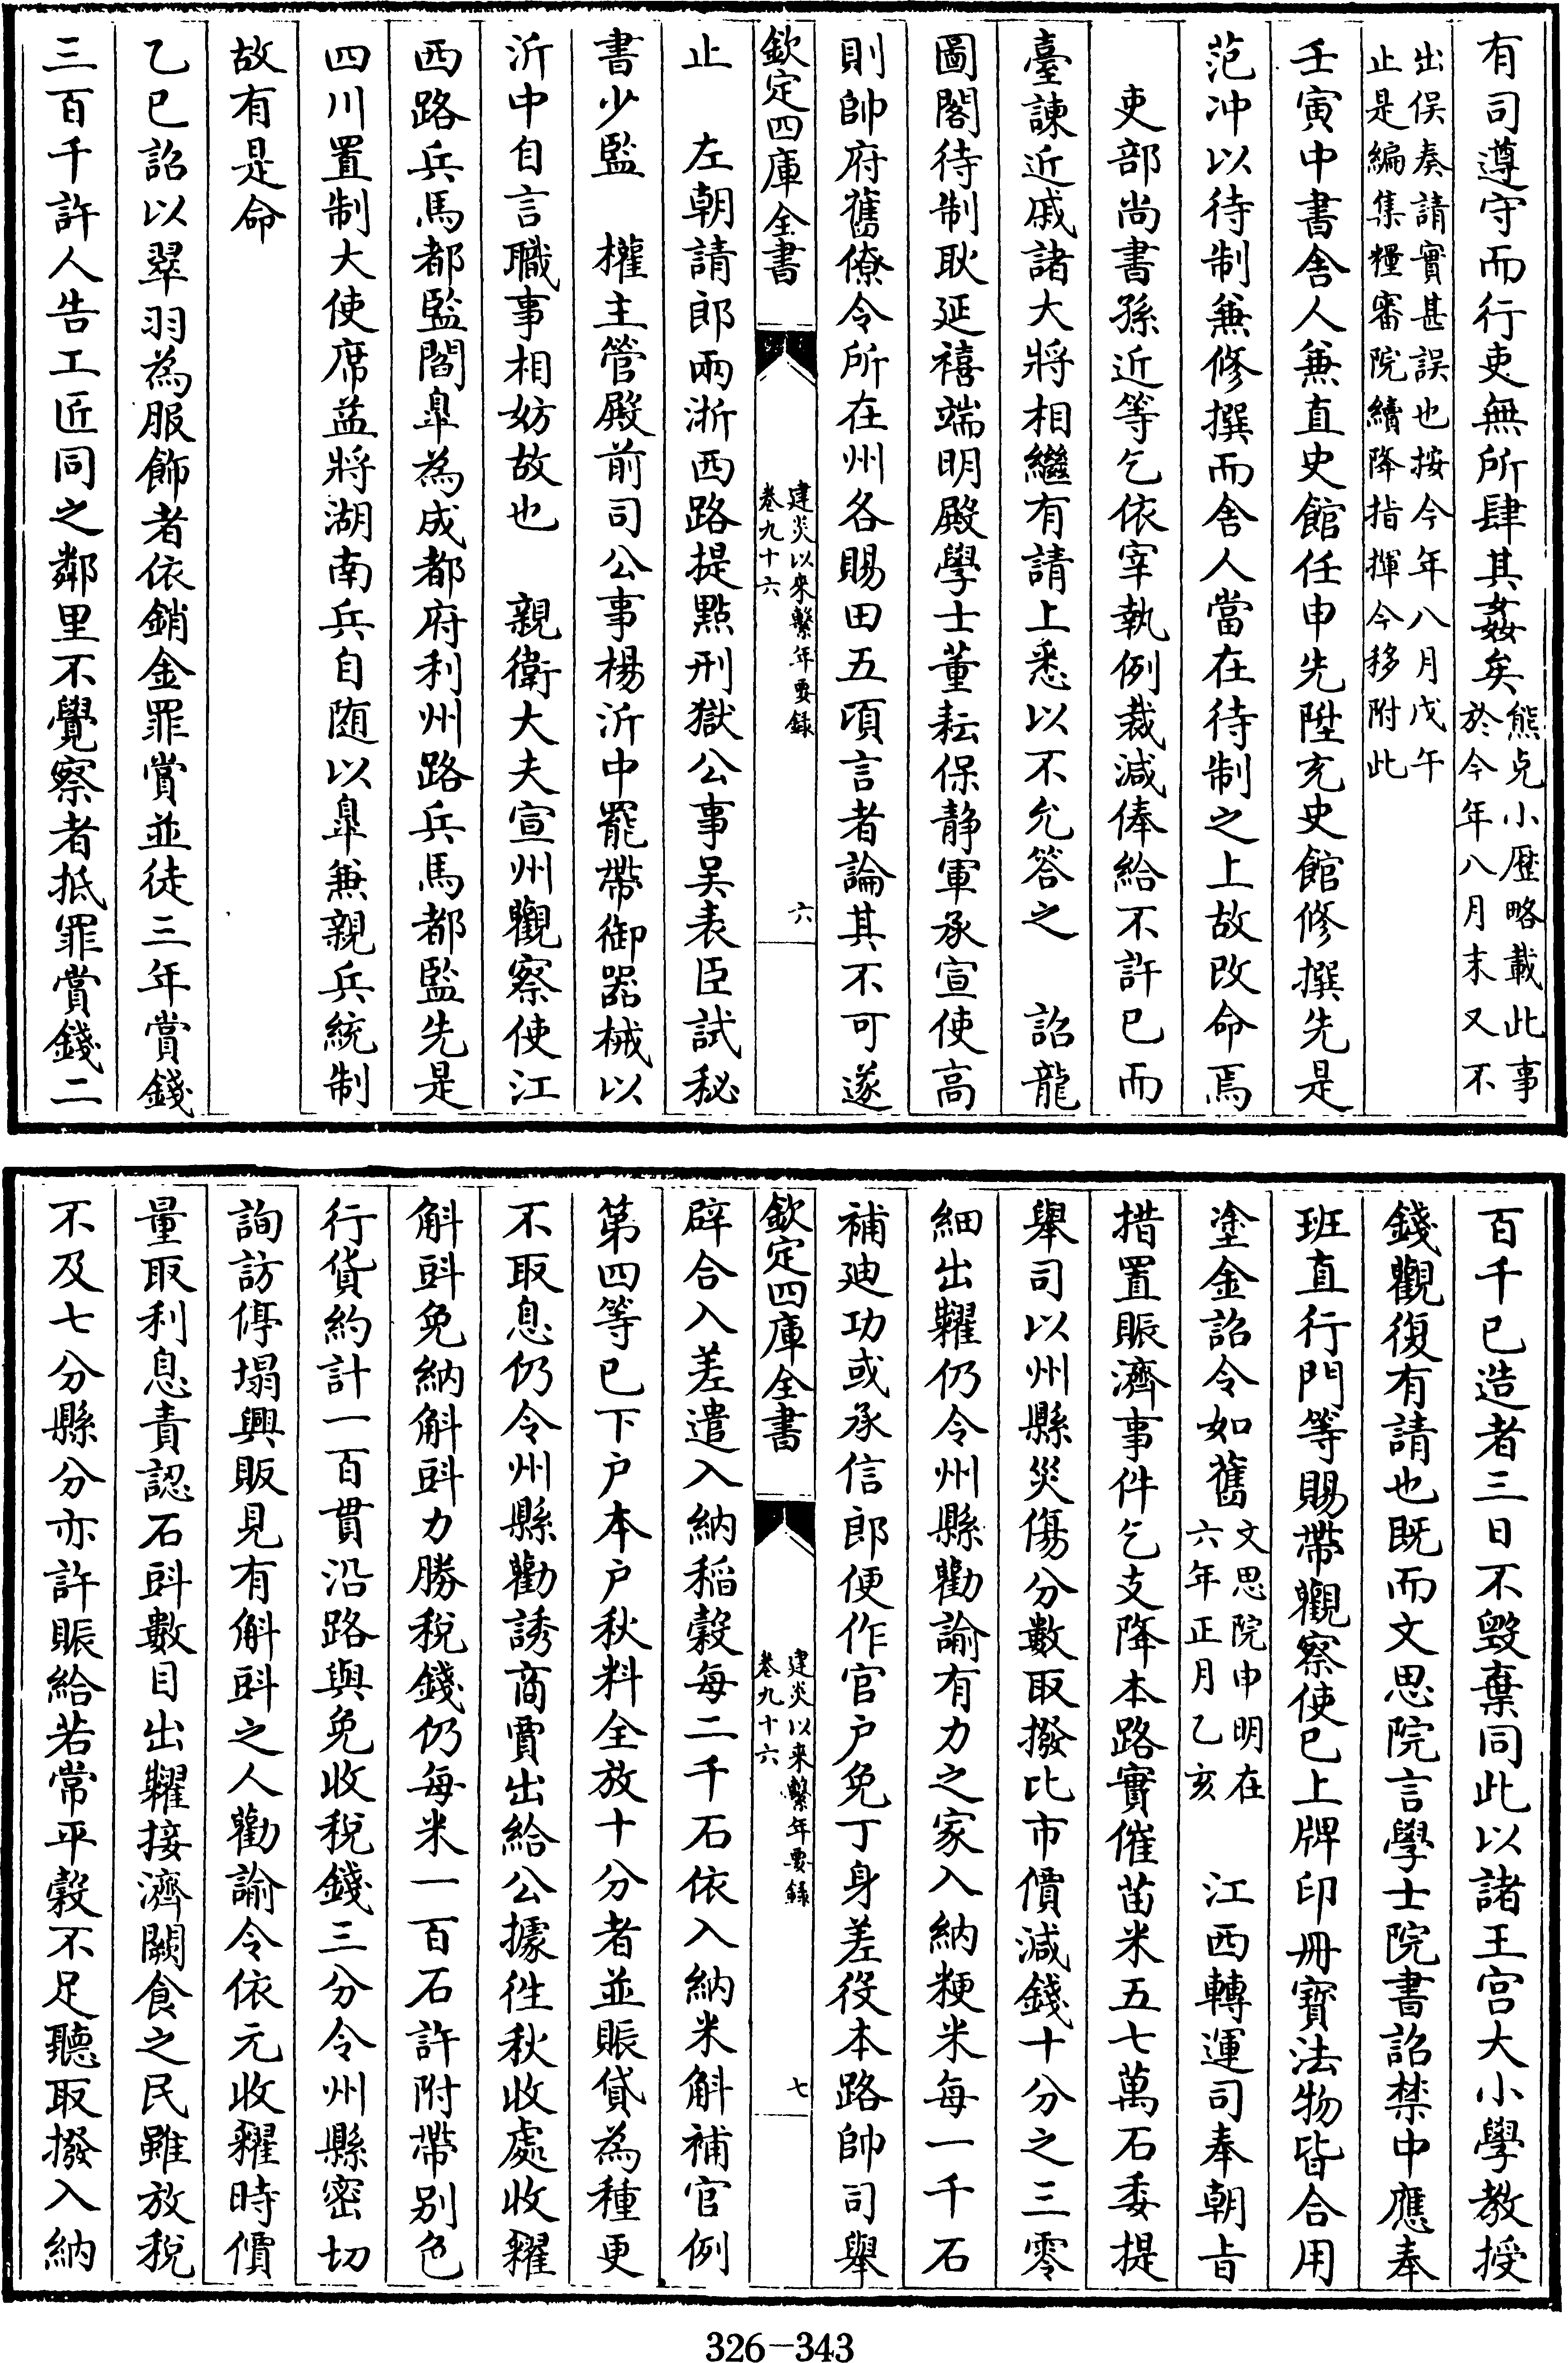 有司遵守而行吏無所肆其姦矣熊克小歷略載此事於今年八月末又不
出俣奏請實甚誤也按今年八月戊午止是編集糧審院續降指揮今移附此
壬寅中書舍人兼直史館任申先陞充史館修撰先是
范沖以待制兼修撰而舍人當在待制之上故改命焉
吏部尚書孫近等乞依宰執例裁減俸給不許已而
臺諫近戚諸大將相繼有請上悉以不允答之　詔龍
圖閣待制耿延禧端明殿學士董耘保静軍承宣使高
則帥府舊僚令所在州各賜田五頃言者論其不可遂
欽定四庫全書
建炎以來繫年要錄
卷九十六
六
止　左朝請郎兩浙西路提點刑獄公事吴表臣試秘
書少監　權主管殿前司公事楊沂中罷帶御器械以
沂中自言職事相妨故也　親衛大夫宣州觀察使江
西路兵馬都監閻臯為成都府利州路兵馬都監先是
四川置制大使席益將湖南兵自随以臯兼親兵統制
故有是命
乙巳詔以翠羽為服飾者依銷金罪賞並徒三年賞錢
三百千許人告工匠同之鄰里不覺察者抵罪賞錢二
百千已造者三日不毁棄同此以諸王宫大小學教授
錢觀復有請也既而文思院言學士院書詔禁中應奉
班直行門等賜帶觀察使已上牌印冊寳法物皆合用
塗金詔令如舊文思院申明在六年正月乙亥　江西轉運司奉朝㫖
措置賑濟事件乞支降本路實催苗米五七萬石委提
舉司以州縣災傷分數取撥比市價減錢十分之三零
細出糶仍令州縣勸諭有力之家入納粳米每一千石
補廸功或承信郎便作官户免丁身差役本路帥司舉
欽定四庫全書
建炎以来繫年要錄
卷九十六
七
辟合入差遣入納稻穀每二千石依入納米斛補官例
第四等已下户本户秋料全放十分者並賑貸為種更
不取息仍令州縣勸誘商賈出給公據徃秋收處收糴
斛㪷免納斛㪷力勝稅錢仍每米一百石許附帶别色
行貨約計一百貫沿路與免收稅錢三分令州縣密切
詢訪停塌興販見有斛㪷之人勸諭令依元收糴時價
量取利息責認石㪷數目出糶接濟闕食之民雖放稅
不及七分縣分亦許賑給若常平穀不足聽取撥入納
326-343